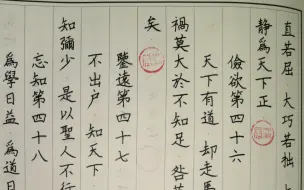 直若屈 大巧若
靜爲天下正
儉欲第四十六
天下有道 却走馬
禍莫大於不知足 咎
矣
鑒遠第四十七
不出户 知天下
知彌少 是以聖人不行
忘知第四十八
爲學日益 爲道日